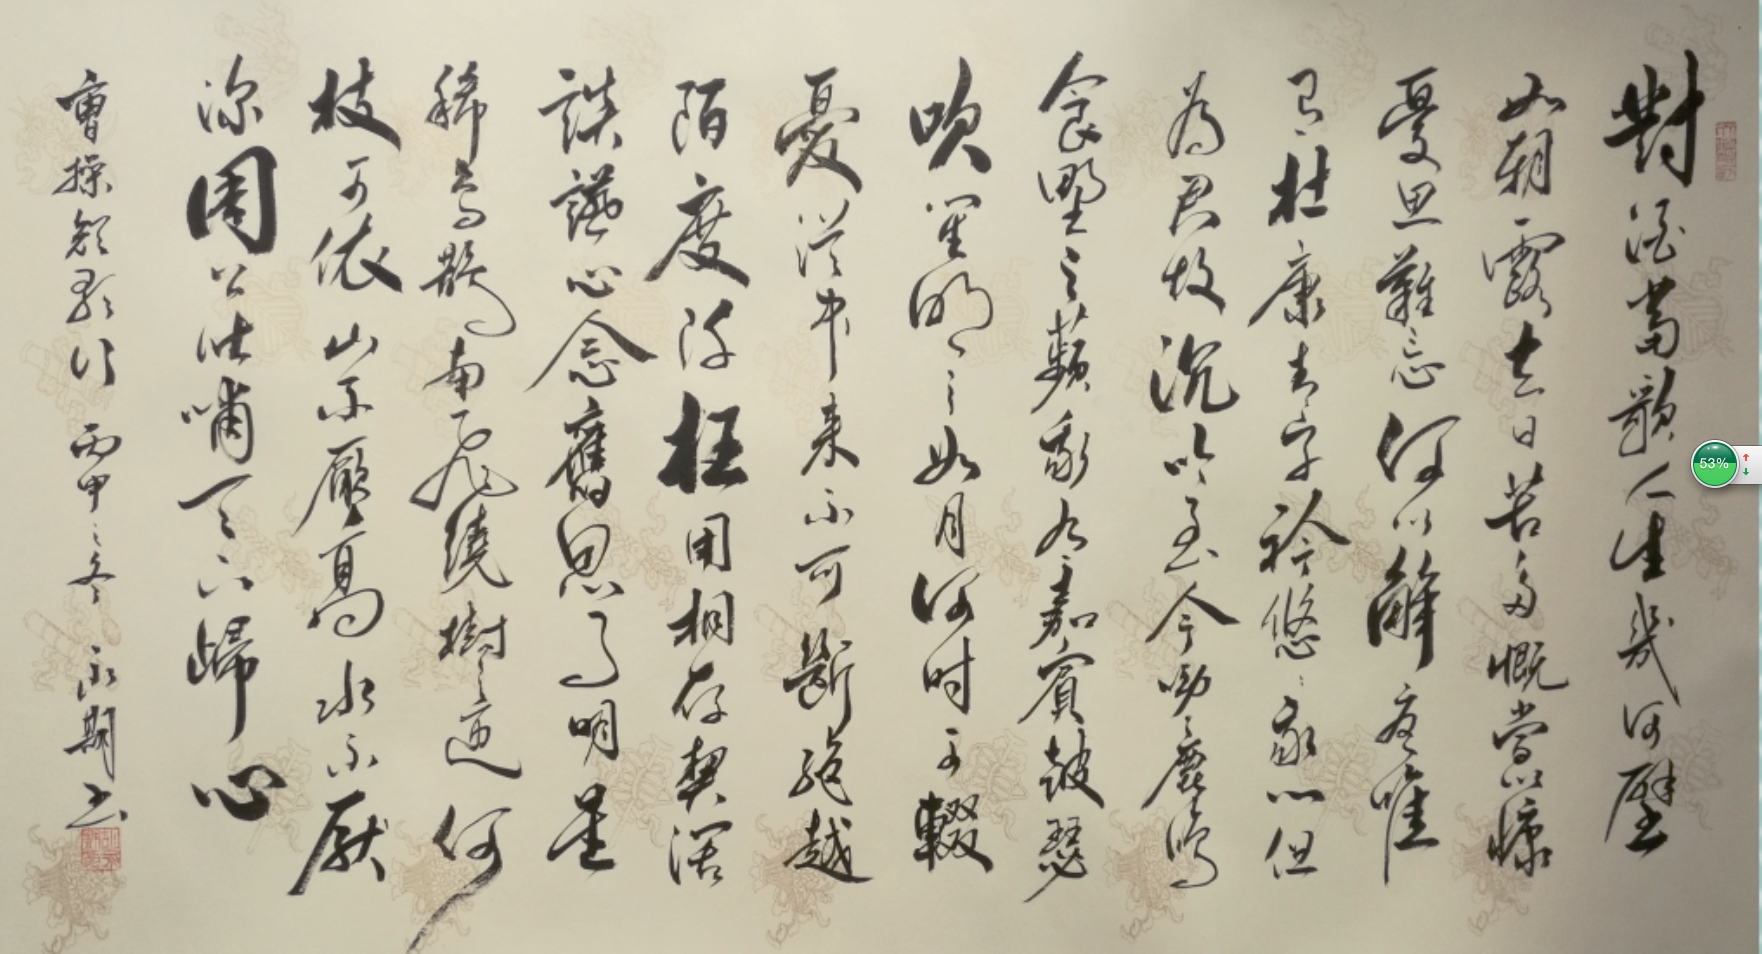 對酒當歌人生幾何壁
如朝露去日苦多慨當以慷
憂思難忘何以解憂唯
有杜康青々子衿悠々我心但
為君故沉吟至今呦々鹿鳴
食野之蘋我有嘉賓鼓瑟
吹笙明々如月何時可輟
憂從中來不可斷絕越
陌度阡枉用相存契闊
談讌心念舊恩月明星
稀烏鵲南飛繞樹三匝何
枝可依山不厭高水不厭
深周公吐哺天下歸心
曹操短歌行 丙申之冬 永期書
53%